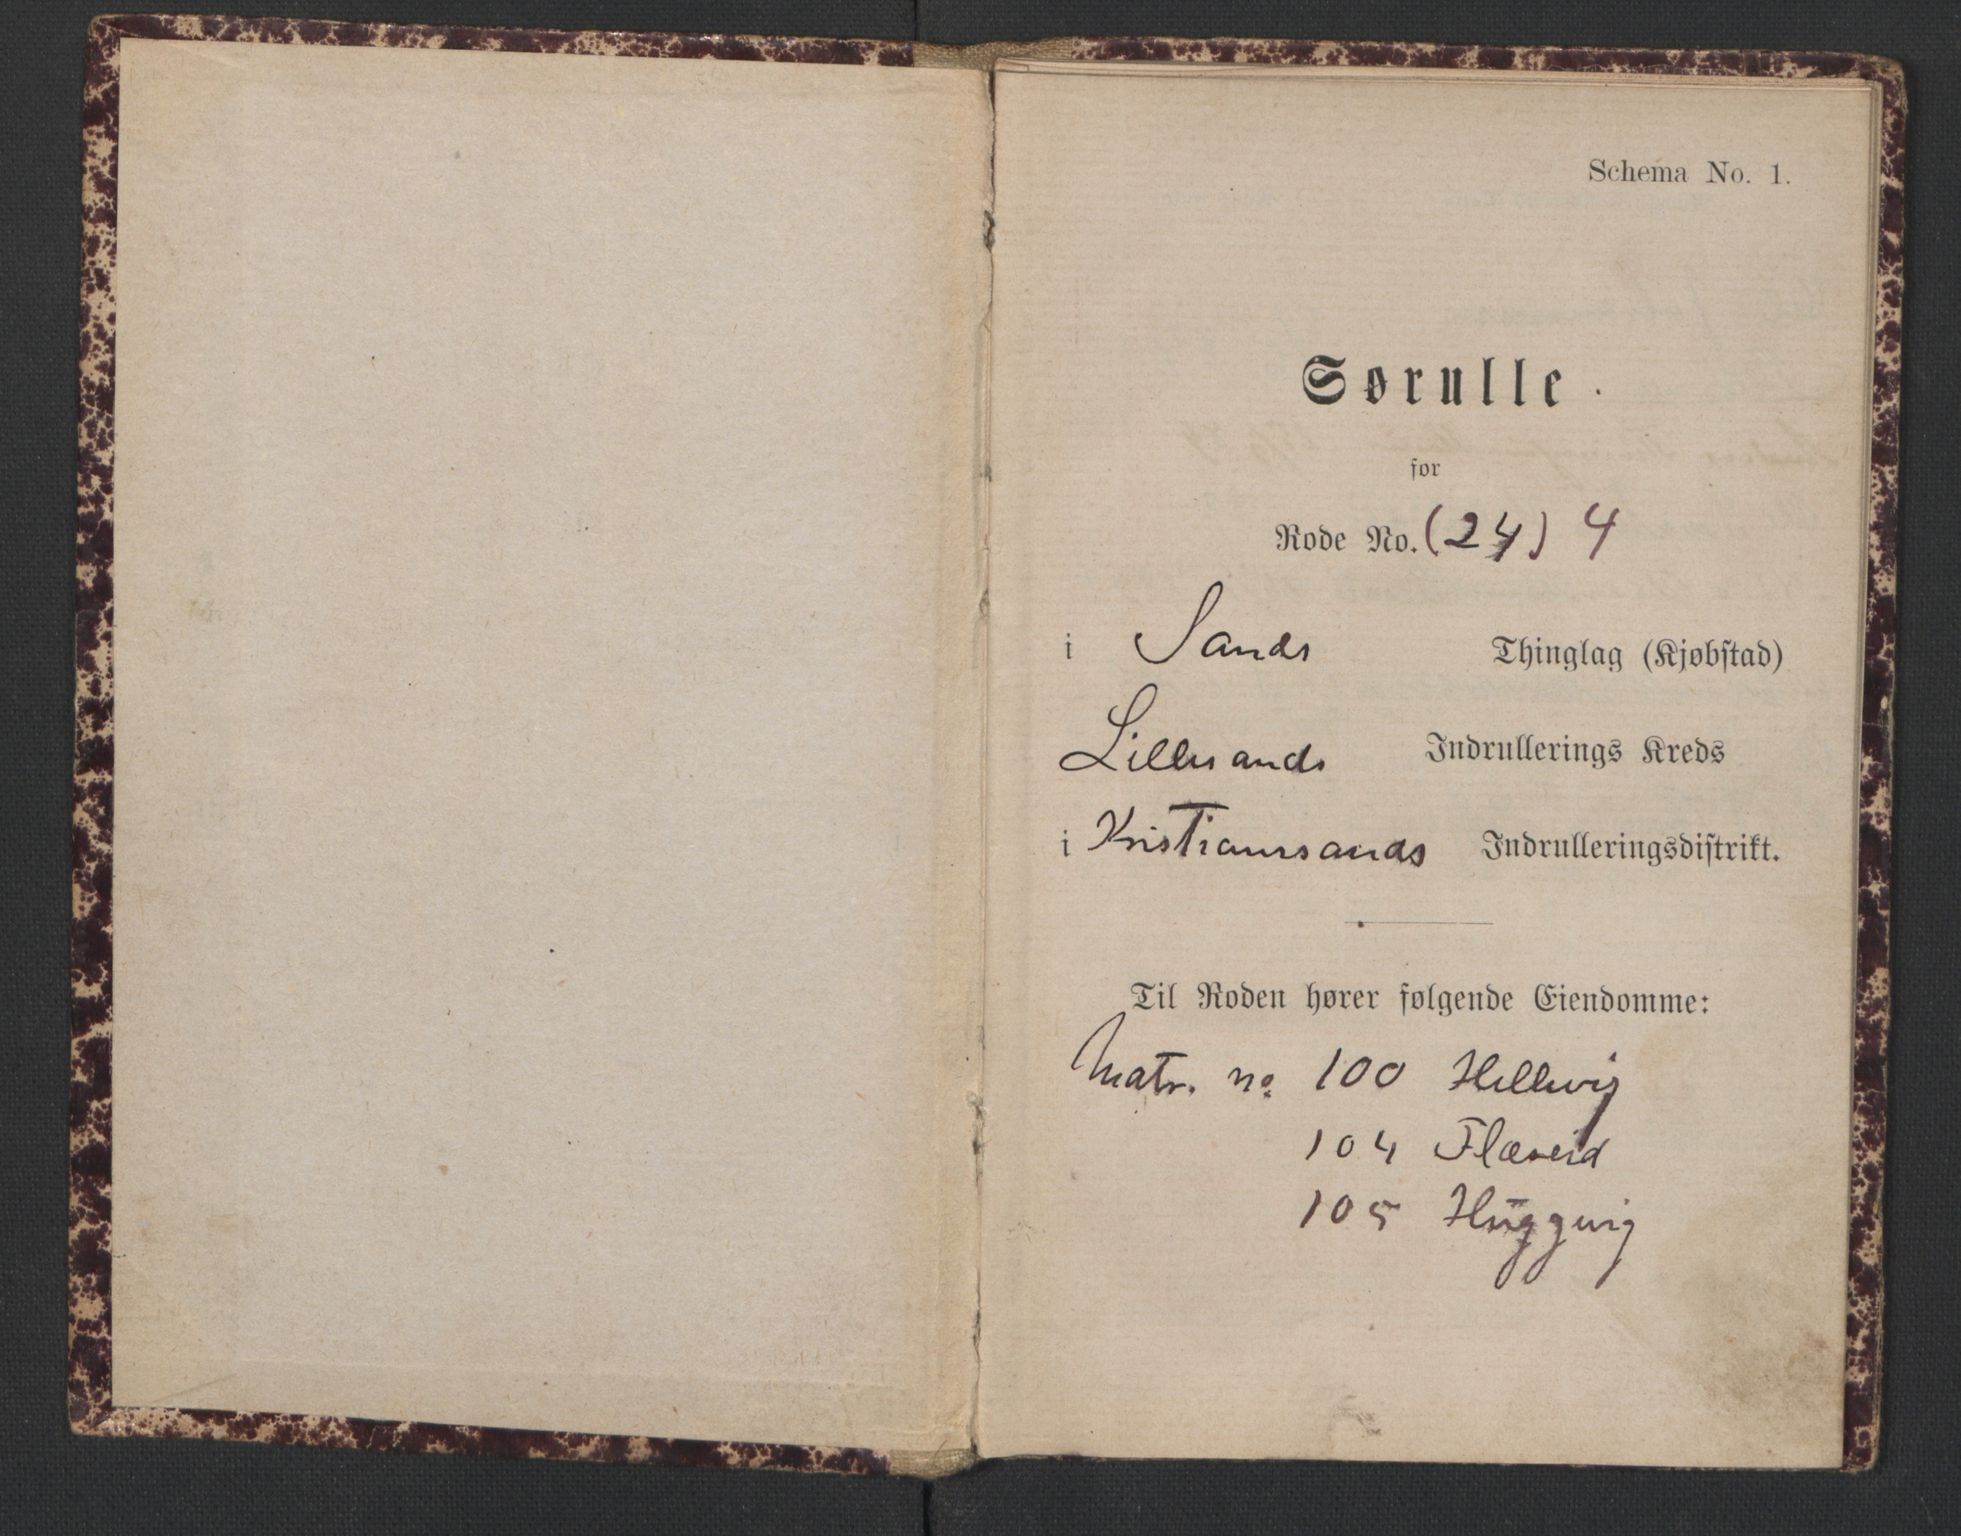 Schema No. 1.
Sørulle.
for
Rode No. (24) 4
i Sands Thinglag (Kjøbstad)
Lillesands Indrullerings Kreds
i Kristianssands Indrulleringsdistrikt.
Til Roden hører følgende Eiendomme:
Matr. no 100 Hellevig
104 Flaseid
105 Huggvig